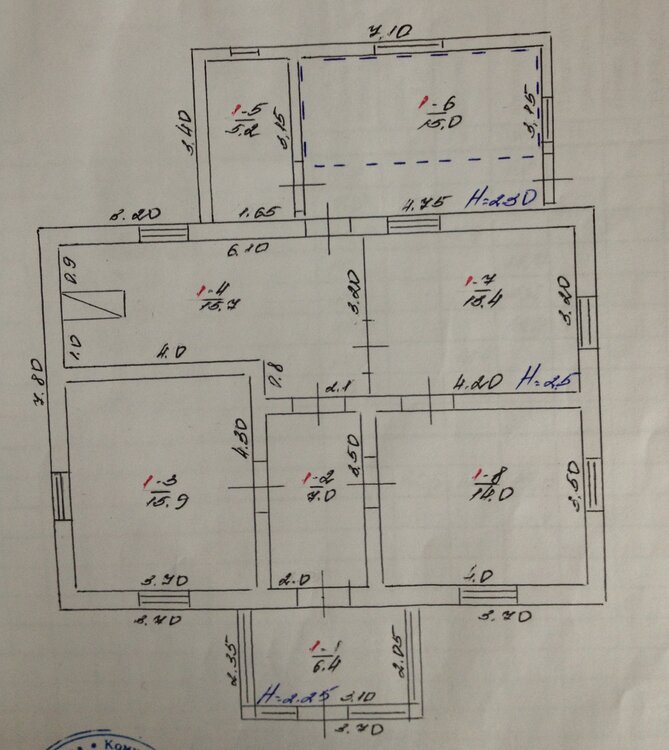 7,10
1-5
5.2
3.40
3,15
1-6
15.0
3,15
3.20
1.65
4.75
H=2.30
6.10
0.9
1-4
15.7
3.20
1-7
13.4
3.20
1.0
4.0
0.8
2.1
4.20
H=2.5
7.80
4.30
1-3
15.9
3.50
1-2
7.0
1-8
14.0
3.50
3.70
2.0
4.0
3.70
3.70
2.35
1-1
6.4
2.05
H=2.25
3.10
3.70
Ком